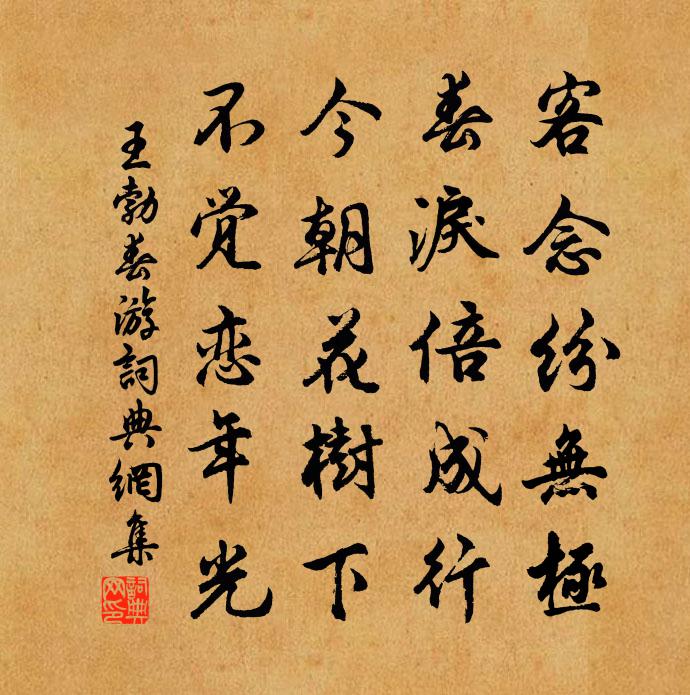 客念纷無極
春淚倍成行
今朝花樹下
不觉恋年光
王勃春游詞典網集
詞典网印